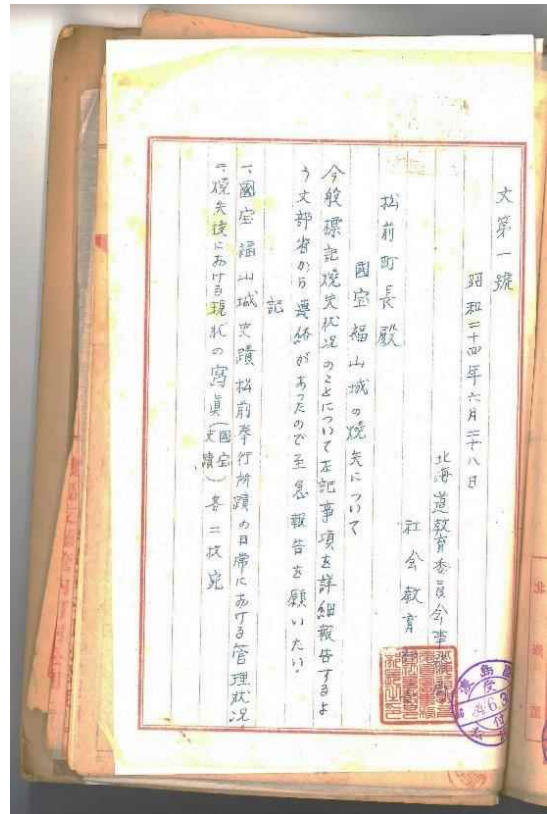 文第一號
昭和二十四年六月二十八日
北海道教育委員会事務局
社会教育
松前町長殿
國宝福山城の焼失について
今般標記焼失状況のことについて左記事項を詳細報告するよ
う文部省から連絡があったので至急報告を願いたい。
記
一、國宝福山城史蹟松前奉行所蹟の日常における管理状況。
一、焼失後における現状の寫眞(國宝 史蹟)各二枚宛